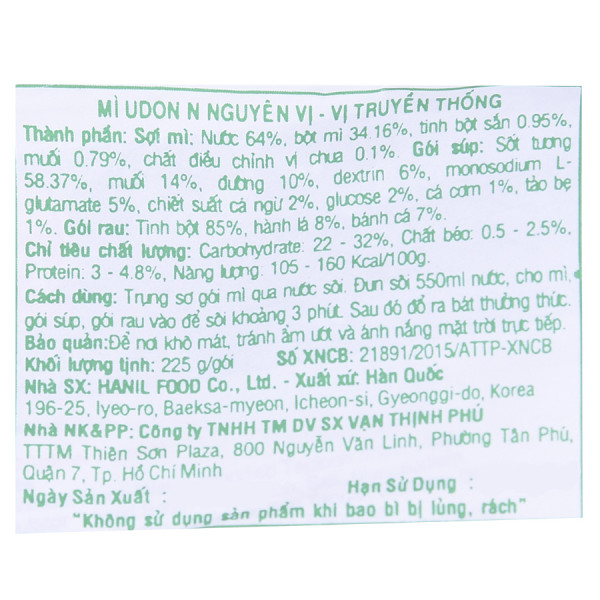 MÌ UDON N NGUYÊN VỊ - VỊ TRUYỀN THỐNG
Thành phần: Sợi mì: Nước 64%, bột mì 34.16%, tinh bột sắn 0.95%,
muối 0.79%, chất điều chỉnh vị chua 0.1%. Gói súp: Sốt tương
58.37%, muối 14%, đường 10%, dextrin 6%, monosodium L-
glutamate 5%, chiết suất cá ngừ 2%, glucose 2%, cá cơm 1%, tảo bẹ
1%. Gói rau: Tinh bột 85%, hành lá 8%, bánh cá 7%.
Chỉ tiêu chất lượng: Carbohydrate: 22 - 32%, Chất béo: 0.5 - 2.5%,
Protein: 3 - 4.8%, Năng lượng: 105 - 160 Kcal/100g.
Cách dùng: Trụng sơ gói mì qua nước sôi. Đun sôi 550ml nước, cho mì,
gói súp, gói rau vào để sôi khoảng 3 phút. Sau đó đổ ra bát thưởng thức.
Bảo quản: Để nơi khô mát, tránh ẩm ướt và ánh nắng mặt trời trực tiếp.
Khối lượng tịnh: 225 g/gói Số XNCB: 21891/2015/ATTP-XNCB
Nhà SX: HANIL FOOD Co., Ltd. - Xuất xứ: Hàn Quốc
196-25, Iyeo-ro, Baeksa-myeon, Icheon-si, Gyeonggi-do, Korea
Nhà NK&PP: Công ty TNHH TM DV SX VẠN THỊNH PHÚ
TTTM Thiên Sơn Plaza, 800 Nguyễn Văn Linh, Phường Tân Phú,
Quận 7, Tp. Hồ Chí Minh
Ngày Sản Xuất : Hạn Sử Dụng :
"Không sử dụng sản phẩm khi bao bì bị lủng, rách"